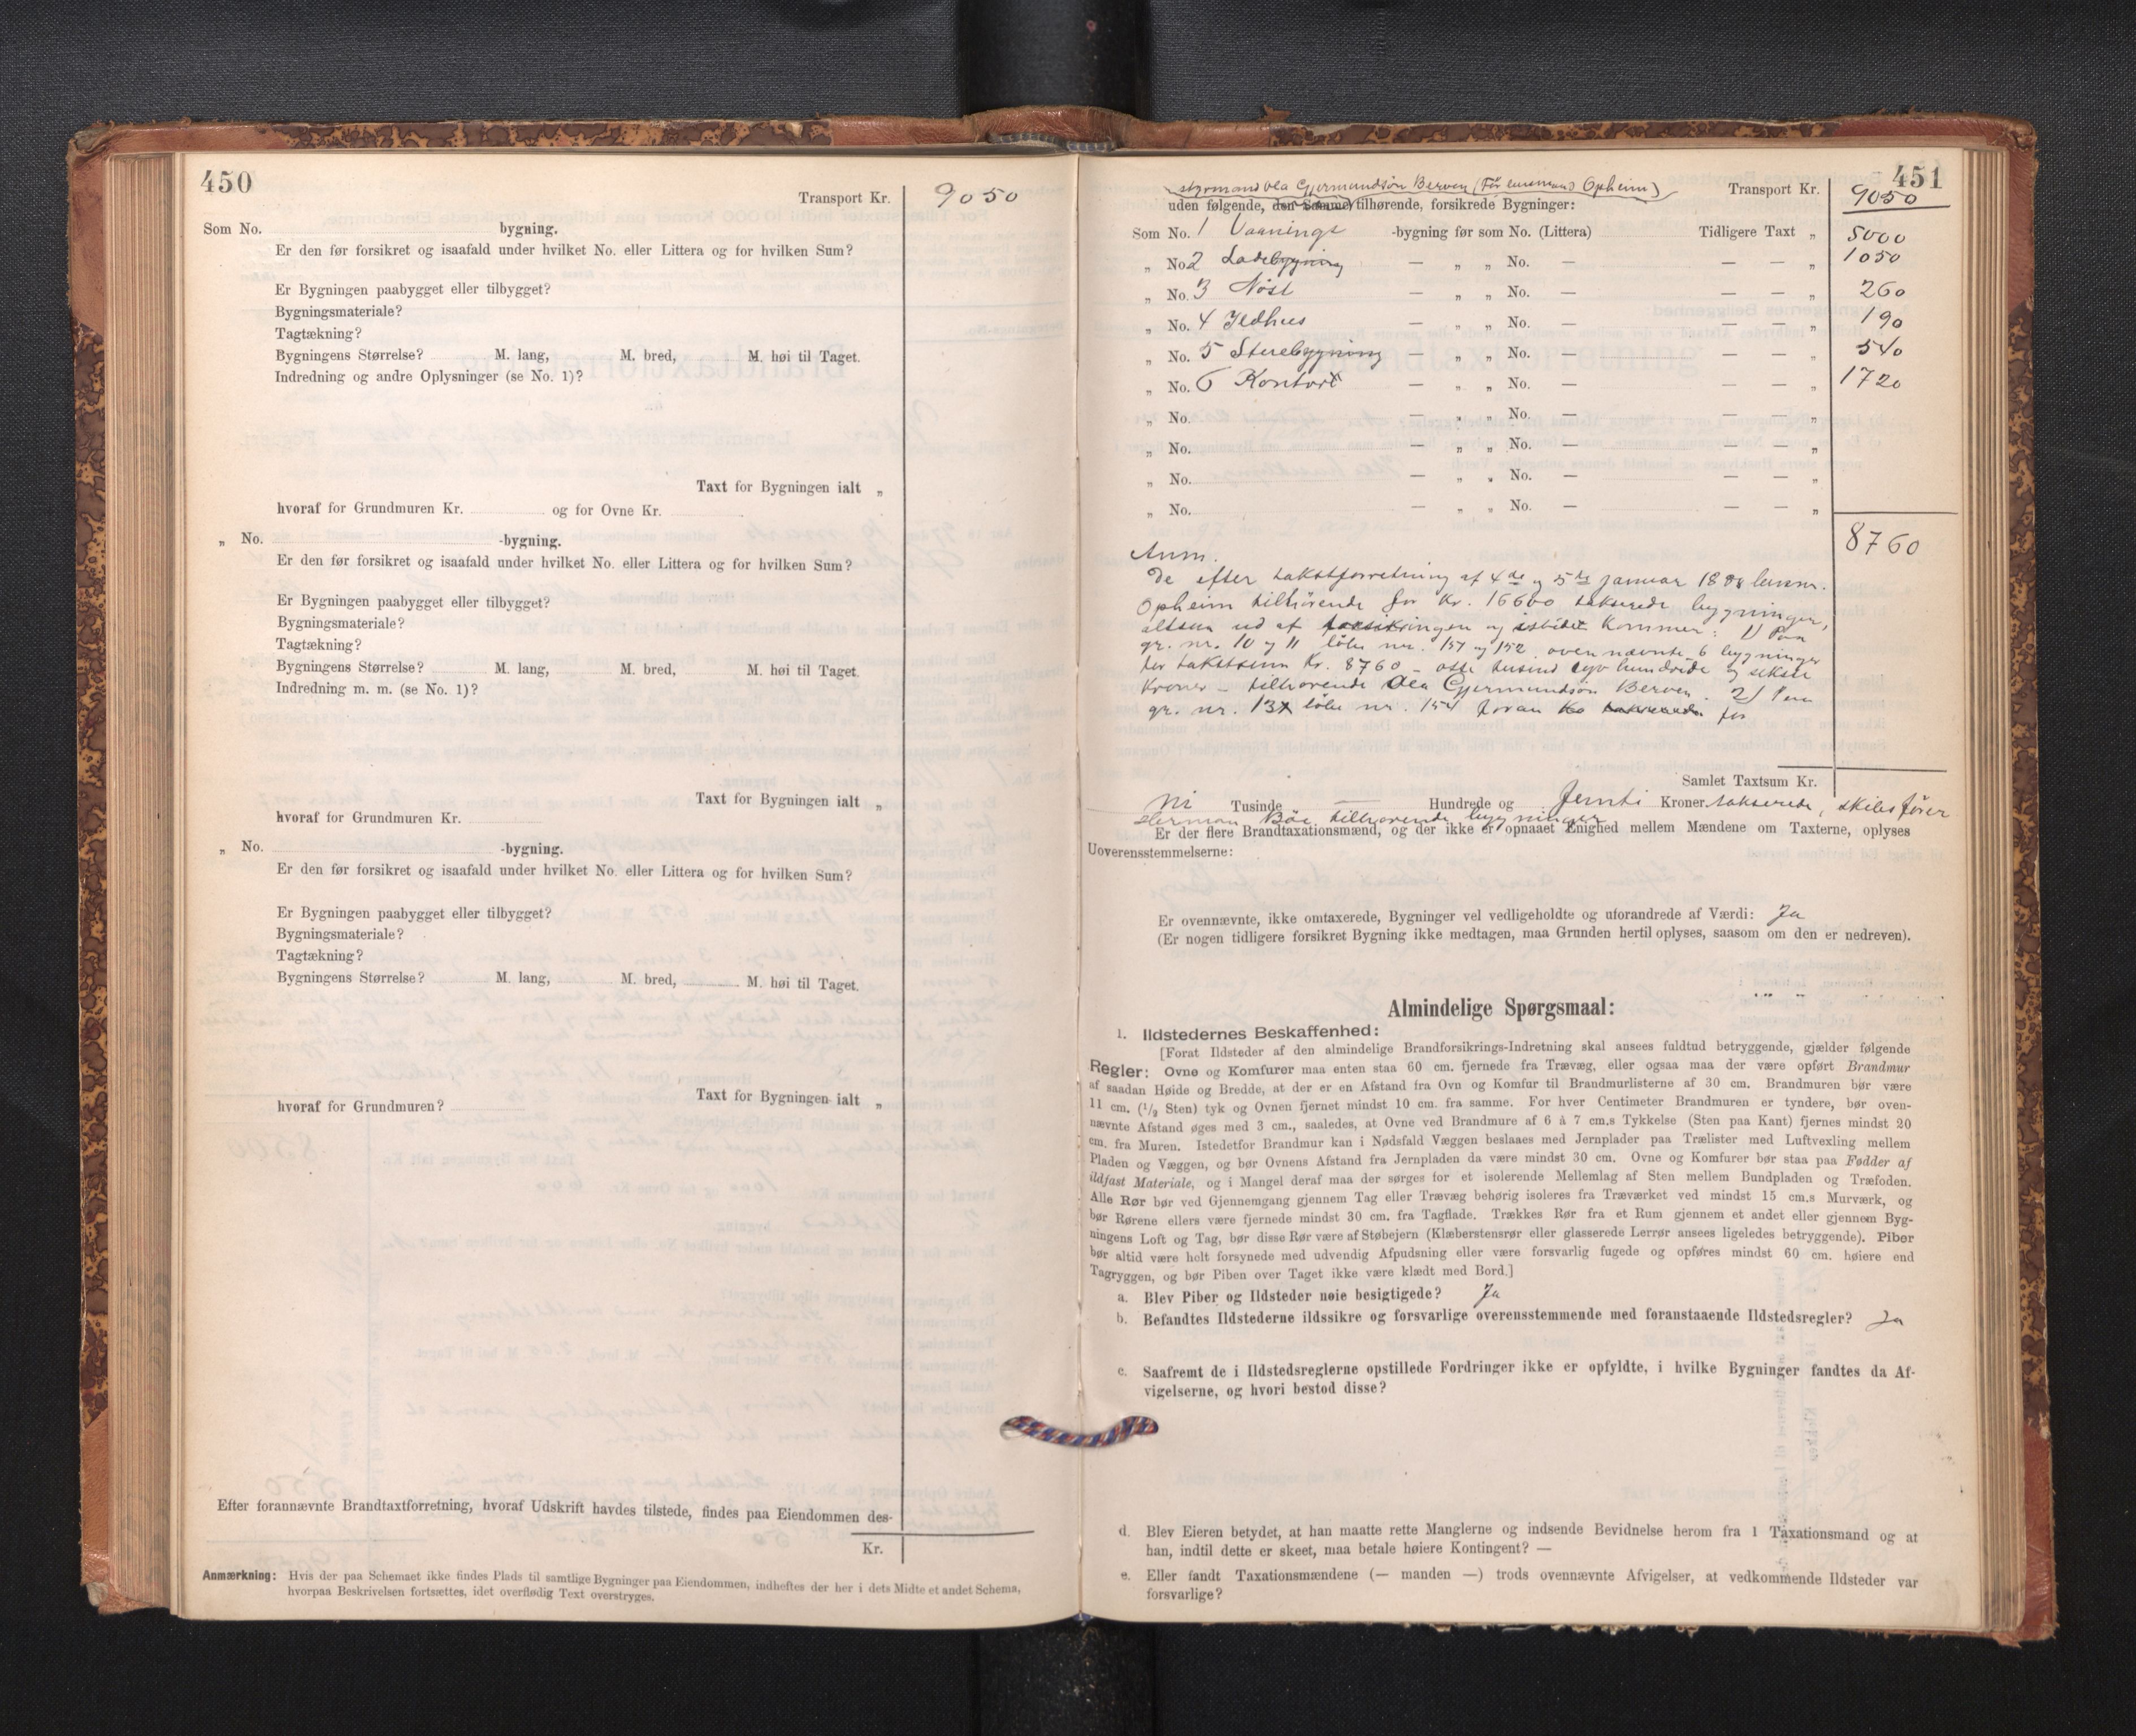 450
Transport Kr. 9050
Som No. bygning.
Er den før forsikret og isaafald under hvilket No. eller Littera og for hvilken Sum?
Er Bygningen paabygget eller tilbygget?
Bygningsmateriale?
Tagtækning?
Bygningens Størrelse? M. lang, M. bred, M. høi til Taget.
Indredning og andre Oplysninger (se No. 1)?
Taxt for Bygningen ialt „
hvoraf for Grundmuren Kr. og for Ovne Kr.
„ No. -bygning.
Er den før forsikret og isaafald under hvilket No. eller Littera og for hvilken Sum?
Er Bygningen paabygget eller tilbygget?
Bygningsmateriale?
Tagtækning?
Bygningens Størrelse? M. lang, M. bred, M. høi til Taget.
Indredning m. m. (se No. 1)?
Taxt for Bygningen ialt „
hvoraf for Grundmuren Kr.
„ No. -bygning.
Er den før forsikret og isaafald under hvilket No. eller Littera og for hvilken Sum?
Er Bygningen paabygget eller tilbygget?
Bygningsmateriale?
Tagtækning?
Bygningens Størrelse? M. lang, M. bred, M. høi til Taget.
Taxt for Bygningen ialt „
hvoraf for Grundmuren?
Efter forannævnte Brandtaxtforretning, hvoraf Udskrift havdes tilstede, findes paa Eiendommen des-
Kr.
Anmærkning: Hvis der paa Schemaet ikke findes Plads til samtlige Bygninger paa Eiendommen, indheftes der her i dets Midte et andet Schema,
hvorpaa Beskrivelsen fortsættes, idet overflødig Text overstryges.
451
styrmand Ola Gjermundsøn Berven (Før lensmand Opheim)
Transport Kr. 9050
uden følgende, den Samme tilhørende, forsikrede Bygninger:
Som No. 1 Vaanings -bygning før som No. (Littera) Tidligere Taxt „ 5000
„ No. 2 Ladebygning — „ „ No. — — — „ 1050
„ No. 3 Nøst — „ „ No. — — — „ 260
„ No. 4 Ildhus — „ „ No. — — — „ 190
„ No. 5 Sturebygning — „ „ No. — — — „ 540
„ No. 6 Kontor — „ „ No. — — — „ 1720
„ No. — „ „ No. — — — „
„ No. — „ „ No. — — — „
„ No. — „ „ No. — — — „
„ No. — „ „ No. — — — „
8760
Anm.
De efter takstforretning af 4de og 5te januar 18 lensm.
Opheim tilhörende for Kr. 16600 takserede bygninger,
altsaa ud af forsikringen og istedet kommer: 1) Paa
gr. nr. 10 og 11 löbe nr. 151 og 152 ovennævnte 6 bygninger
for takstsum Kr. 8760 - otte tusind syv hundrede og seksti
Kroner - tilhørende Ola Gjermundsøn Berven. 2) Paa
gr. nr. 13 löbe nr. 154 foran for
Samlet Taxtsum Kr.
Ni Tusinde — Hundrede og femti Kroner takserede, skibsfører
Herman Böe tilhørende bygninger
Er der flere Brandtaxationsmænd, og der ikke er opnaaet Enighed mellem Mændene om Taxterne, oplyses
Uoverensstemmelserne:
Er ovennævnte, ikke omtaxerede, Bygninger vel vedligeholdte og uforandrede af Værdi: Ja
(Er nogen tidligere forsikret Bygning ikke medtagen, maa Grunden hertil oplyses, saasom om den er nedreven).
Almindelige Spørgsmaal:
1. Ildstedernes Beskaffenhed:
[Forat Ildsteder af den almindelige Brandforsikrings-Indretning skal ansees fuldtud betryggende, gjælder følgende
Regler: Ovne og Komfurer maa enten staa 60 cm. fjernede fra Trævæg, eller ogsaa maa der være opført Brandmur
af saadan Høide og Bredde, at der er en Afstand fra Ovn og Komfur til Brandmurlisterne af 30 cm. Brandmuren bør være
11 cm. (1/2 Sten) tyk og Ovnen fjernet mindst 10 cm. fra samme. For hver Centimeter Brandmuren er tyndere, bør oven-
nævnte Afstand øges med 3 cm., saaledes, at Ovne ved Brandmure af 6 à 7 cm.s Tykkelse (Sten paa Kant) fjernes mindst 20
cm. fra Muren. Istedetfor Brandmur kan i Nødsfald Væggen beslaaes med Jernplader paa Trælister med Luftvexling mellem
Pladen og Væggen, og bør Ovnens Afstand fra Jernpladen da være mindst 30 cm. Ovne og Komfurer bør staa paa Fødder af
ildfast Materiale, og i Mangel deraf maa der sørges for et isolerende Mellemlag af Sten mellem Bundpladen og Træfoden.
Alle Rør bør ved Gjennemgang gjennem Tag eller Trævæg behørig isoleres fra Træværket ved mindst 15 cm.s Murværk, og
bør Rørene ellers være fjernede mindst 30 cm. fra Tagflade. Trækkes Rør fra et Rum gjennem et andet eller gjennem Byg-
ningens Loft og Tag, bør disse Rør være af Støbejern (Klæberstensrør eller glasserede Lerrør ansees ligeledes betryggende). Piber
bør altid være helt forsynede med udvendig Afpudsning eller være forsvarlig fugede og opføres mindst 60 cm. høiere end
Tagryggen, og bør Piben over Taget ikke være klædt med Bord.]
a. Blev Piber og Ildsteder nøie besigtigede? Ja
b. Befandtes Ildstederne ildssikre og forsvarlige overensstemmende med foranstaaende Ildstedsregler? Ja
c. Saafremt de i Ildstedsreglerne opstillede Fordringer ikke er opfyldte, i hvilke Bygninger fandtes da Af-
vigelserne, og hvori bestod disse?
d. Blev Eieren betydet, at han maatte rette Manglerne og indsende Bevidnelse herom fra 1 Taxationsmand og at
han, indtil dette er skeet, maa betale høiere Kontingent? —
e. Eller fandt Taxationsmændene (— manden —) trods ovennævnte Afvigelser, at vedkommende Ildsteder var
forsvarlige?